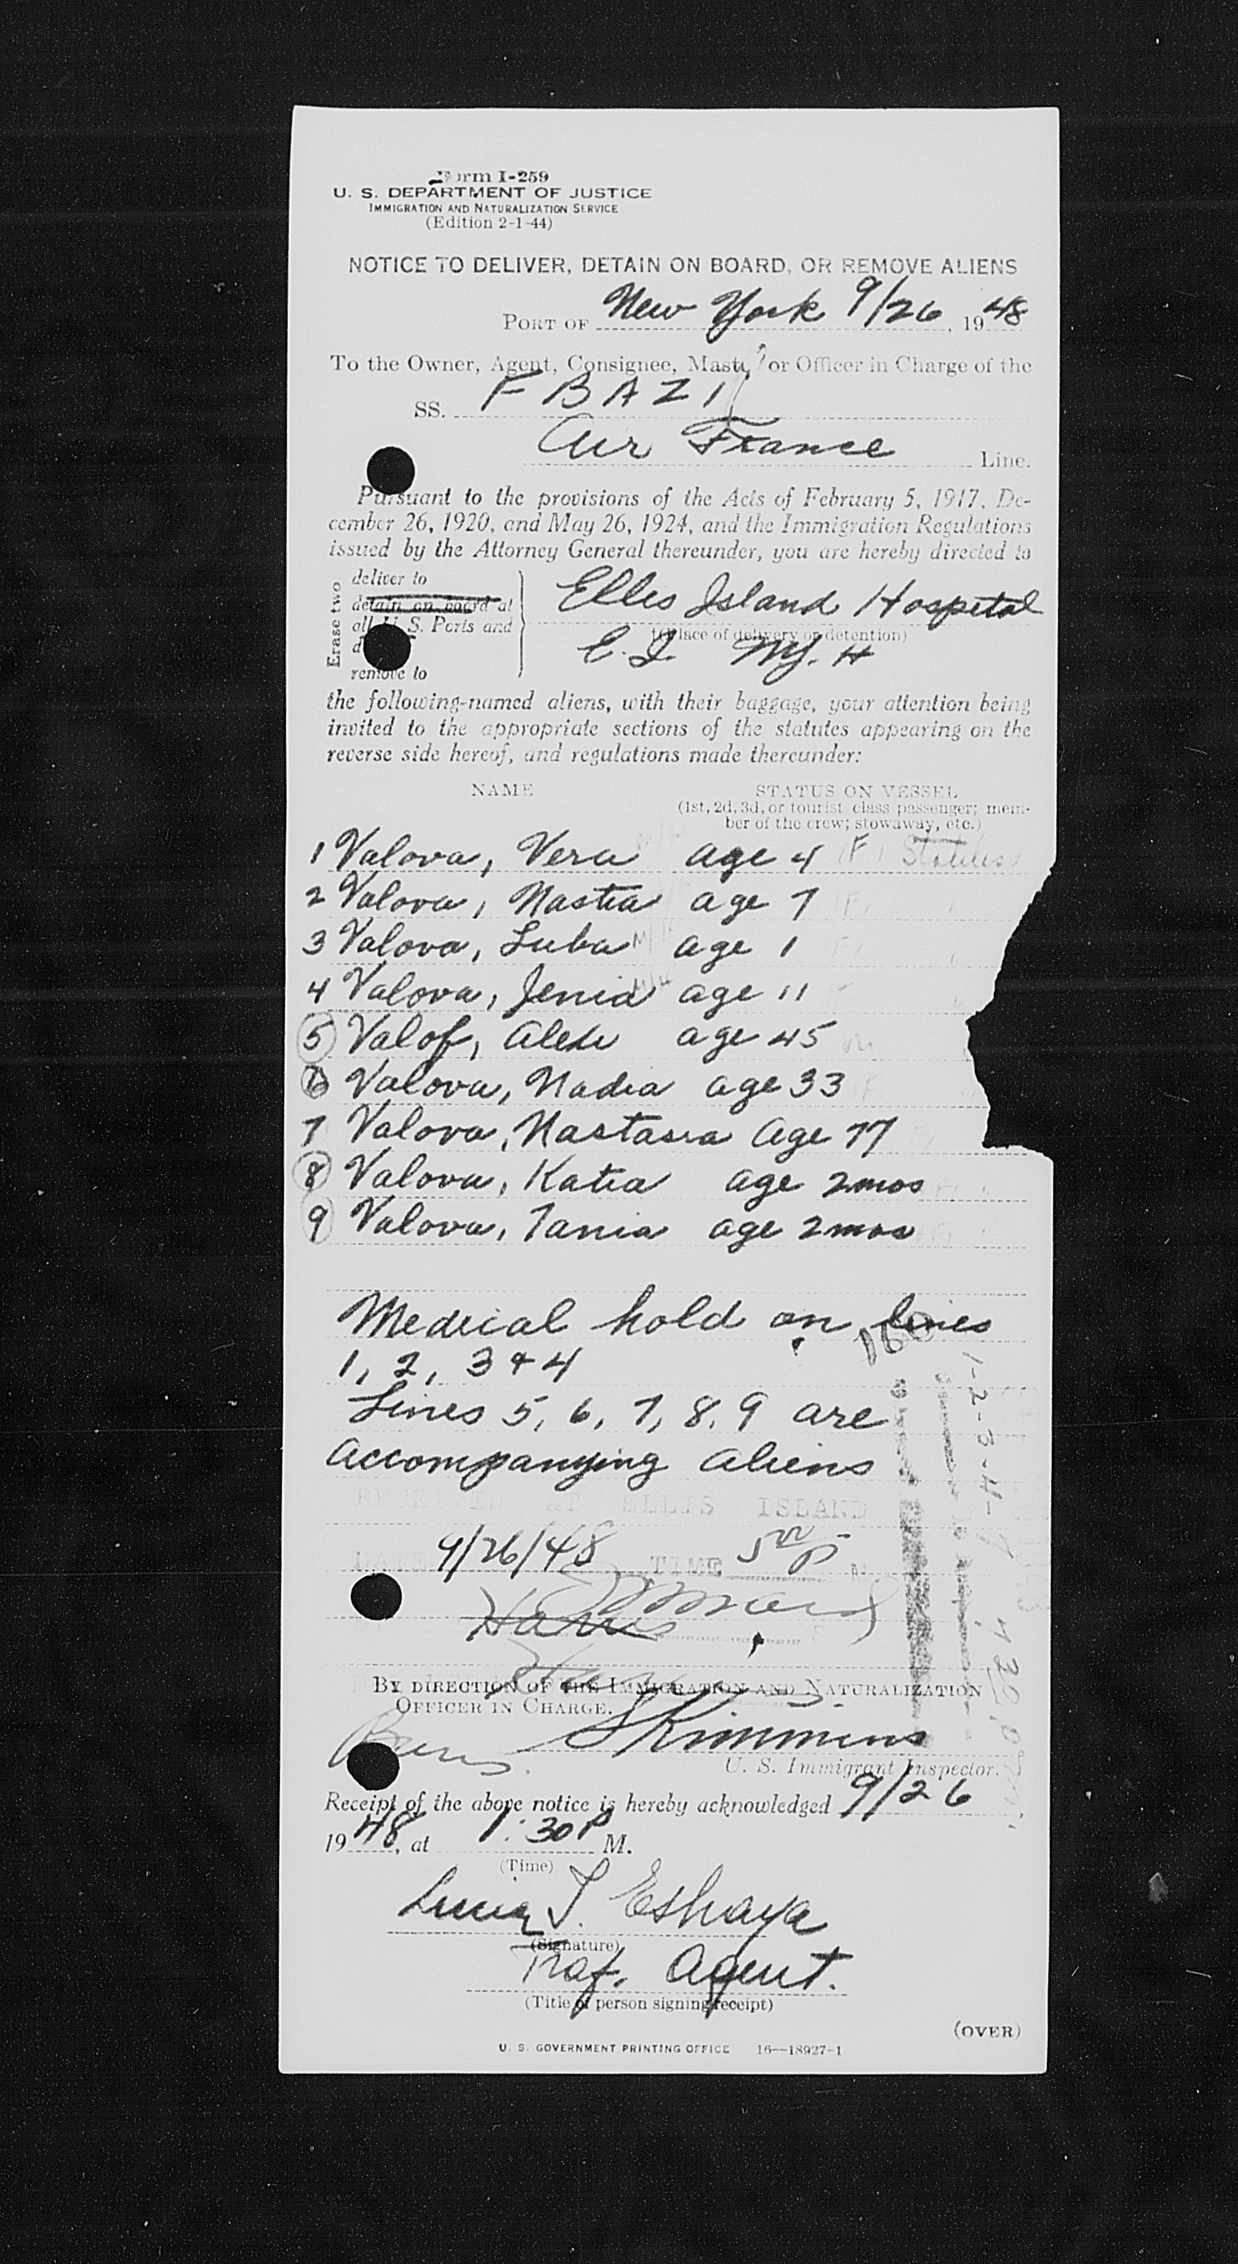 Form I-259
U. S. DEPARTMENT OF JUSTICE
IMMIGRATION AND NATURALIZATION SERVICE
(Edition 2-1-44)
NOTICE TO DELIVER, DETAIN ON BOARD, OR REMOVE ALIENS
PORT OF New York 9/26, 1948
To the Owner, Agent, Consignee, Master or Officer in Charge of the
SS. FBAZI
Air France Line.
Pursuant to the provisions of the Acts of February 5, 1917, De-
cember 26, 1920, and May 26, 1924, and the Immigration Regulations
issued by the Attorney General thereunder, you are hereby directed to
Erase two
deliver to
detain on board at
all U. S. Ports and
remove to
Ellis Island Hospital
(Place of delivery or detention)
E. I. N.Y. H
the following-named aliens, with their baggage, your attention being
invited to the appropriate sections of the statutes appearing on the
reverse side hereof, and regulations made thereunder:
NAME STATUS ON VESSEL
(1st, 2d, 3d, or tourist class passenger; mem-
ber of the crew; stowaway, etc.)
1 Valova, Vera age 4 (F)
2 Valova, Nastia age 7 (F)
3 Valova, Luba age 1 (F)
4 Valova, Jenia age 11
5 Valof, age 45
6 Valova, Nadia age 33
7 Valova, Nastasia age 77
8 Valova, Katia age 2mos
9 Valova, Tania age 2mos
Medical hold on lines
1, 2, 3 & 4
Lines 5, 6, 7, 8, 9 are
accompanying aliens
1-2-3-4-
AT ELLIS ISLAND
DATE 9/26/48 TIME 5 00 P M.
Harris
BY DIRECTION OF THE IMMIGRATION AND NATURALIZATION
OFFICER IN CHARGE.
Skimmins
U. S. Immigrant Inspector.
Receipt of the above notice is hereby acknowledged 9/26
1948, at 1:30 P M.
(Time)
J. Eshaya
(Signature)
Traf. Agent.
(Title of person signing receipt)
(OVER)
U. S. GOVERNMENT PRINTING OFFICE 16—18927-1